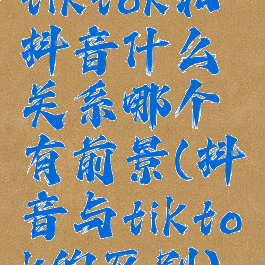 tiktok和
抖音什么
关系哪个
有前景(抖
音与tikto
k的区别)